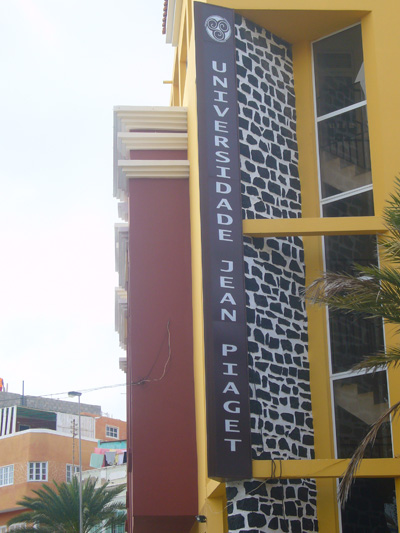 UNIVERSIDADE JEAN PIAGET